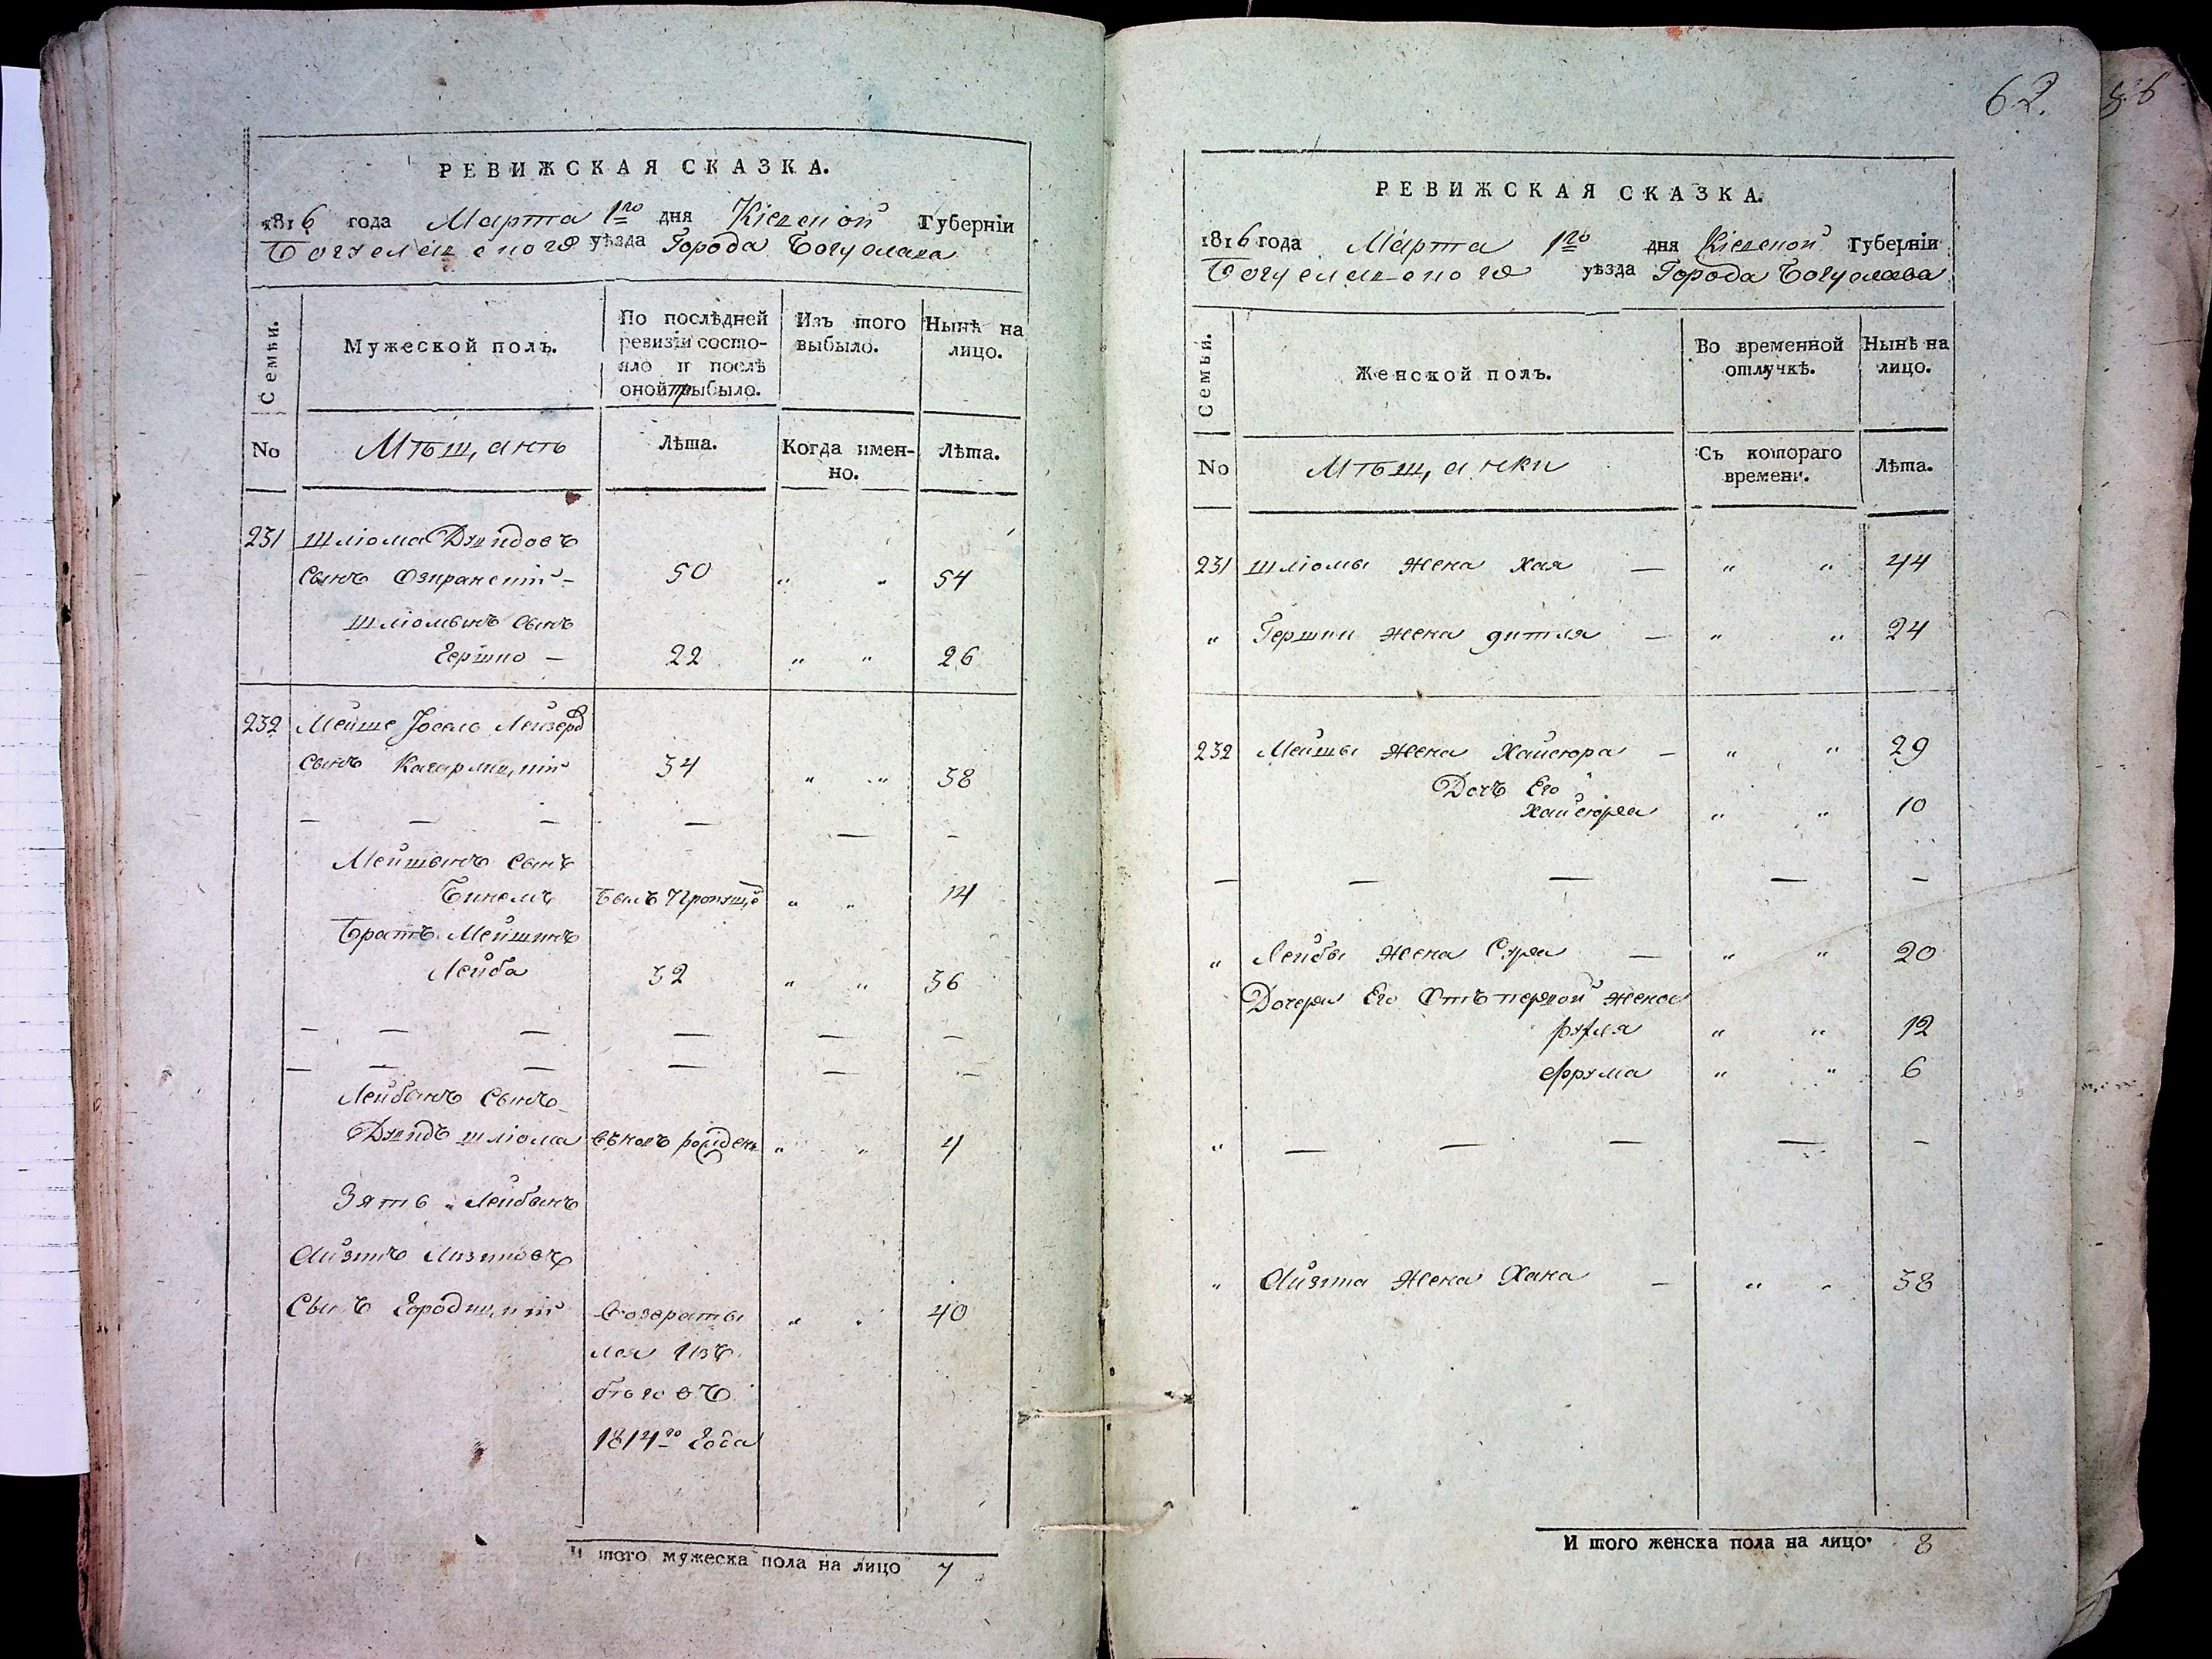 РЕВИЖСКАЯ СКАЗКА.
1816 года Марта 1го дня Кіевской Губерніи
Богуславского уѣзда Города Богуслава
Семьи.
Мужеской полъ.
По послѣдней ревизіи состояло и послѣ оной прибыло.
Изъ того выбыло.
Нынѣ на лицо.
No
Мѣщанъ
Лѣта.
Когда именно.
Лѣта.
231 Шліома Дувидовъ
сынъ Озиранскій - 50 " " 54
Шліомынъ сынъ
Гершко - 22 " " 26
232 Мейше Іосель Лейзеров
сынъ Кагарлицкій 34 " " 38
— — — — — —
Мейшынъ сынъ
Бинемъ былъ Пропущ. " " 14
Братъ Мейшинъ
Лейба 32 " " 36
— — — — — —
— — — — — —
Лейбынъ сынъ
Дувидъ Шліома вновъ рожденъ " " 4
Зять Лейбынъ
Айзикъ
Сынъ Городищкій возврати " " 40
лся изъ
бѣговъ
1814го года
И того мужеска пола на лицо 7
62.
РЕВИЖСКАЯ СКАЗКА.
1816 года Марта 1го дня Кіевской Губерніи
Богуславского уѣзда Города Богуслава
Семьи.
Женской полъ.
Во временной отлучкѣ.
Нынѣ на лицо.
No
Мѣщанки
Съ котораго времени.
Лѣта.
231 Шліомы жена Хая — " " 44
" Гершки жена Дитля — " " 24
232 Мейшы жена Хайсюра — " " 29
Дочъ Его
Хайсюра " " 10
— — — — —
" Лейбы жена Сура — " " 20
Дочери Его Отъ первой жены
Рухля " " 12
Фрума " " 6
" — — — — —
" Айзика жена Хана — " " 38
И того женска пола на лицо. 8